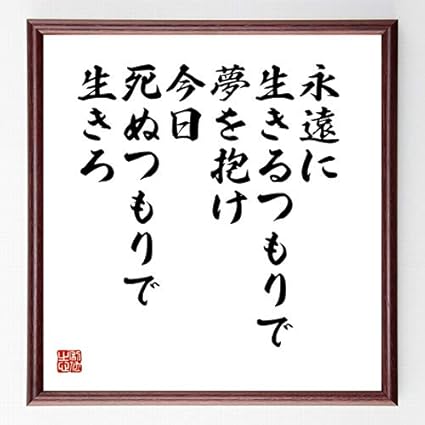 永遠に
生きるつもりで
夢を抱け
今日
死ぬつもりで
生きろ